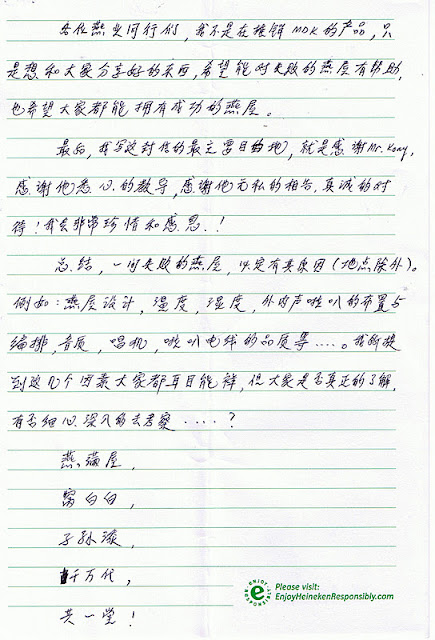 各位燕业同行们，我不是在推销MDK的产品，只
是想和大家分享好的东西，希望能对失败的燕屋有帮助，
也希望大家都能拥有成功的燕屋。
最后，我写这封信的最主要目的地，就是感谢Mr. Kong，
感谢他悉心的教导，感谢他无私的相告，真诚的对
待！我会非常珍惜和感恩！
总结，一间失败的燕屋，必定有其原因（地点除外）。
例如：燕屋设计，温度，湿度，外内声喇叭的布置与
编排，音质，唱机，喇叭电线的品质等.....。我所提
到这几个因素大家都耳目能祥，但大家是否真正的了解，
有否细心深入的去考察.....？
燕满屋，
窝白白，
子孙
千万代，
共一堂！
Please visit:
EnjoyHeinekenResponsibly.com